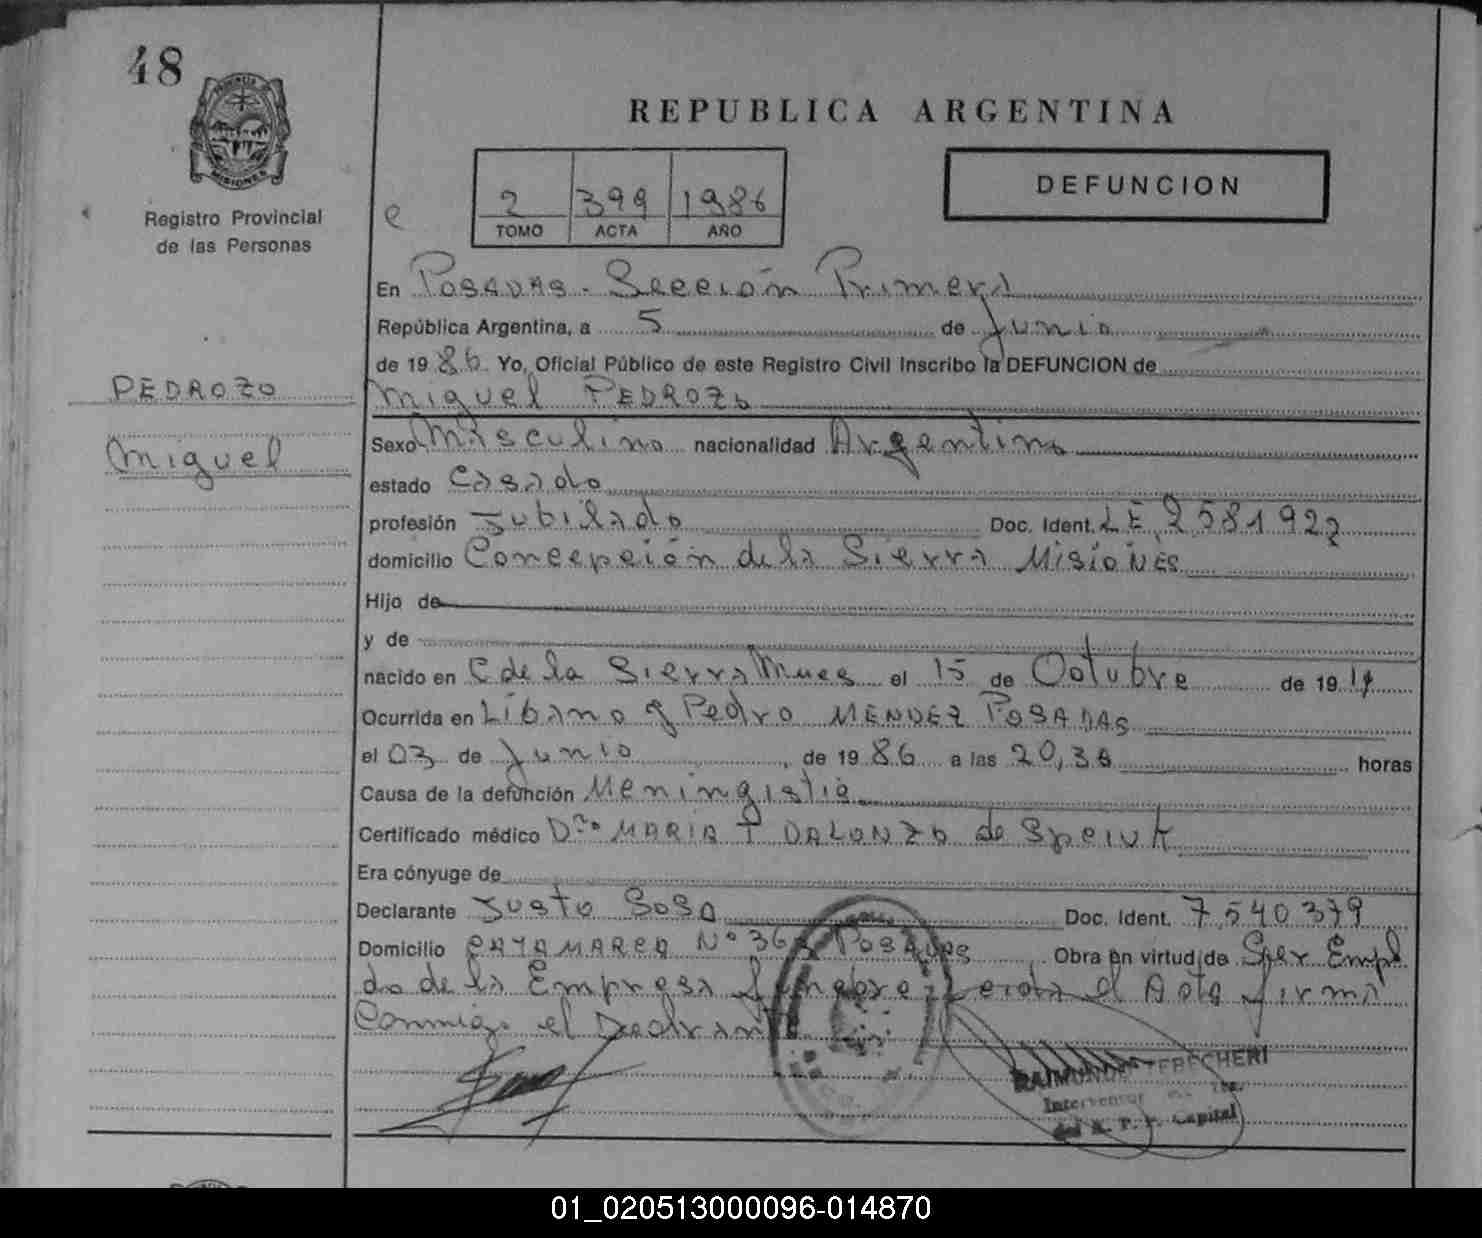 48
PROVINCIA DE
MISIONES
Registro Provincial
de las Personas
PEDROZO
Miguel
REPUBLICA ARGENTINA
DEFUNCION
e
2 399 1986
TOMO ACTA AÑO
En Posadas - Sección Primera
República Argentina, a 5 de Junio
de 1986. Yo, Oficial Público de este Registro Civil Inscribo la DEFUNCION de
Miguel PEDROZO
Sexo Masculino nacionalidad Argentina
estado Casado
profesión Jubilado Doc. Ident. LE 2581922
domicilio Concepción de la Sierra Misiones
Hijo de
y de
nacido en C de la Sierra Mnes el 15 de Octubre de 19
Ocurrida en Líbano y Pedro MENDEZ POSADAS
el 03 de Junio, de 1986 a las 20,30 horas
Causa de la defunción Meningistis
Certificado médico Dra MARIA T DALONZO de Speiuk
Era cónyuge de
Declarante Justo Sosa Doc. Ident. 7,540379
Domicilio CATAMARCA Nº 36 Posadas Obra en virtud de Ser Empl
do de la Empresa Funebre Leida el Acta firma
Conmigo el Declarant
RAIMUNDO TEBECHERI
Interventor
del R. P. P. Capital
01_020513000096-014870